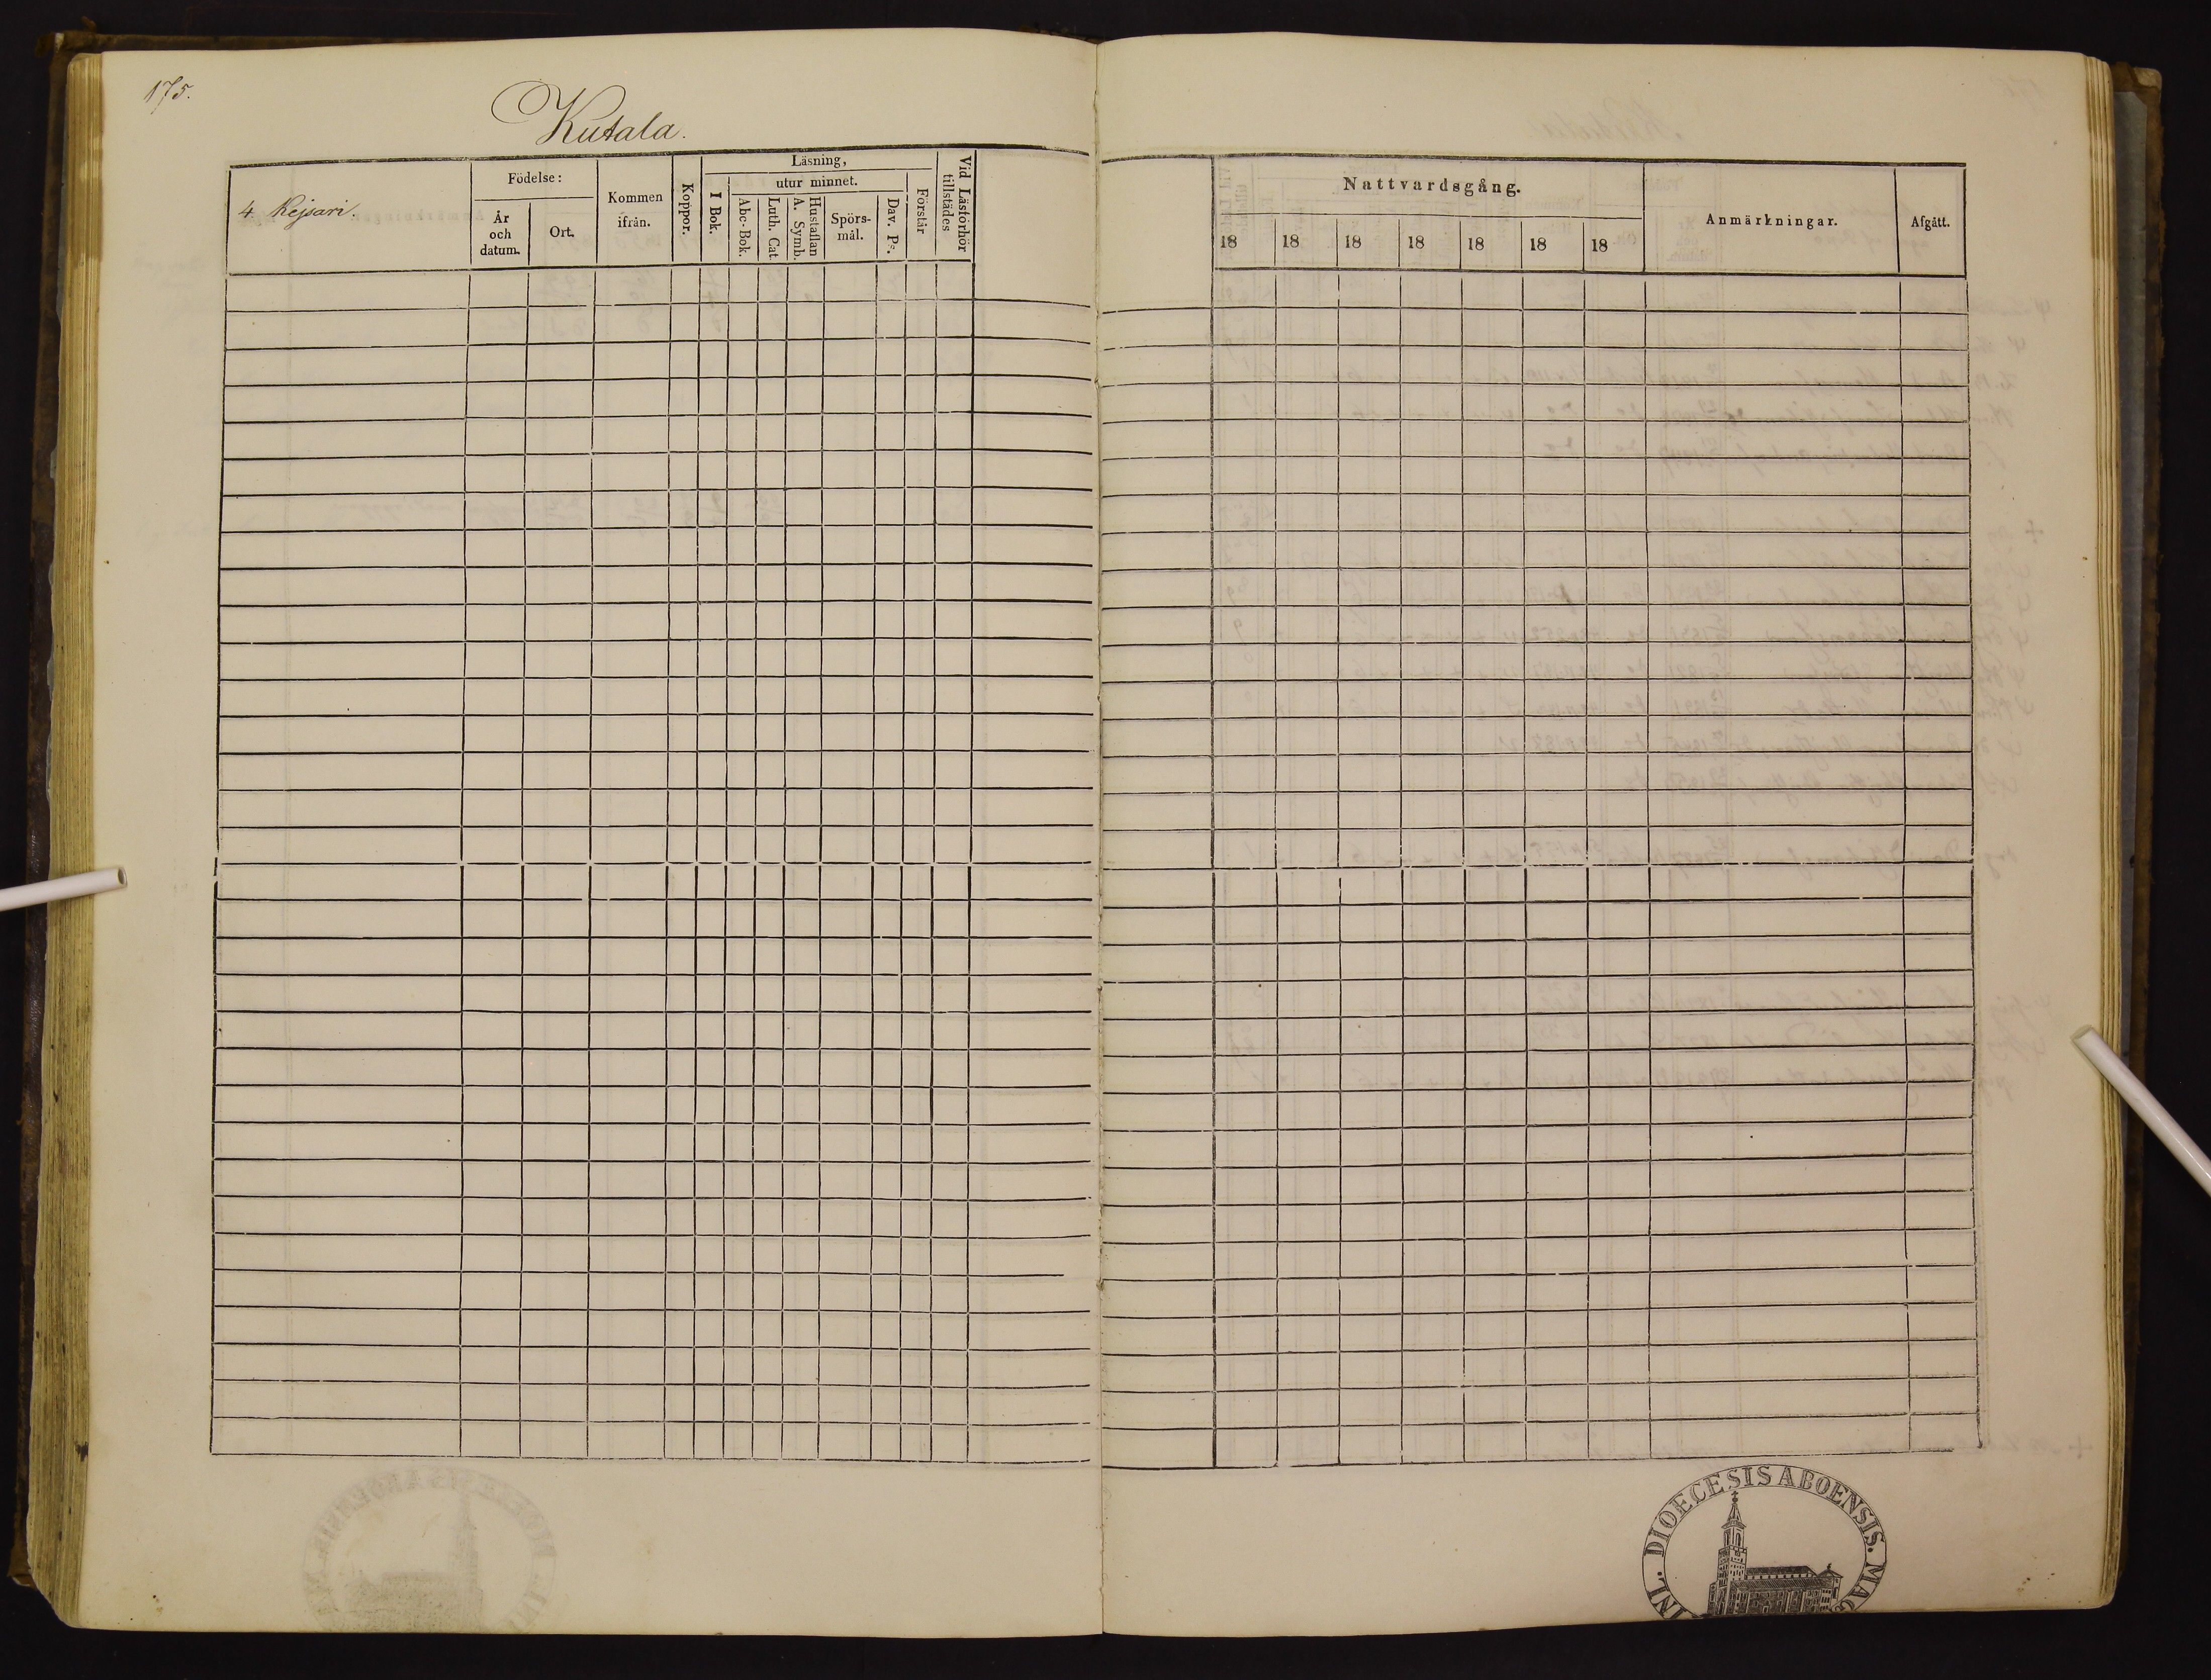 175.
Kutala.
4 Kejsari.
Födelse:
År
och
datum.
Ort.
Kommen
ifrån.
Koppor.
Läsning,
I Bok.
utur minnet.
Abc-Bok.
Luth. Cat
Hustaflan
A. Symb.
Spörs-
mål.
Dav. Ps.
Förstår
Vid Läsförhör
tillstädes
Nattvardsgång.
18 18 18 18 18 18 18
Anmärkningar.
Afgått.
DIOECESIS ABOENSIS.